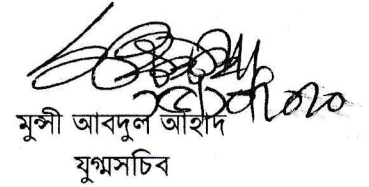 মুন্সী আবদুল আহাদ
যুগ্মসচিব